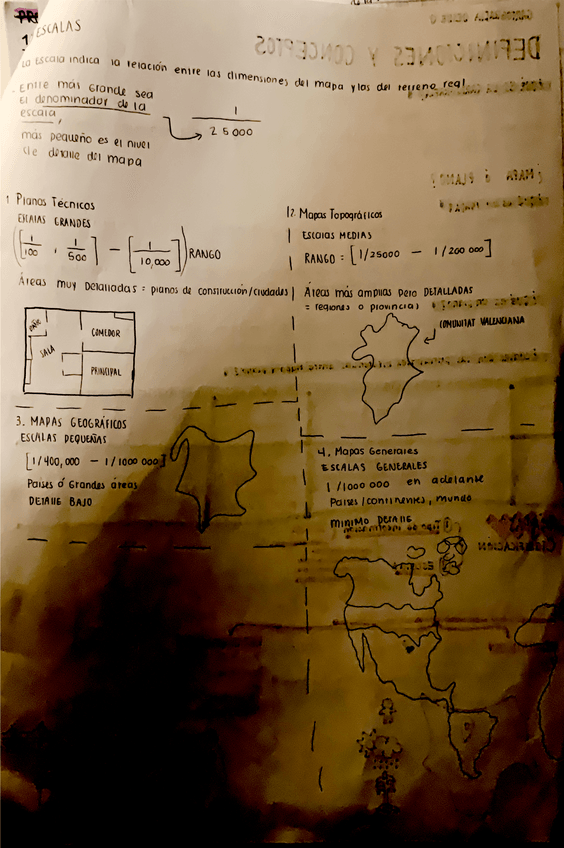 ESCALAS
La Escala indica la relación entre las dimensiones del mapa y las del terreno real
Entre más grande sea
el denominador de la
escala,
más pequeño es el nivel
de detalle del mapa
1
25000
1 Planos Técnicos
ESCALAS GRANDES
([1/100, 1/500] - [1/10,000]) RANGO
Áreas muy Detalladas = planos de construcción/ciudades
BAÑO
SALA
COMEDOR
PRINCIPAL
2. Mapas Topográficos
ESCALAS MEDIAS
RANGO = [1/25000 - 1/200 000]
Áreas más amplias pero DETALLADAS
= regiones o provincias
COMUNITAT VALENCIANA
3. MAPAS GEOGRÁFICOS
ESCALAS PEQUEÑAS
[1/400,000 - 1/1000 000]
Países ó Grandes áreas
DETALLE BAJO
4. Mapas Generales
ESCALAS GENERALES
1/1000 000 en adelante
Países/continentes, mundo
MINIMO DETALLE